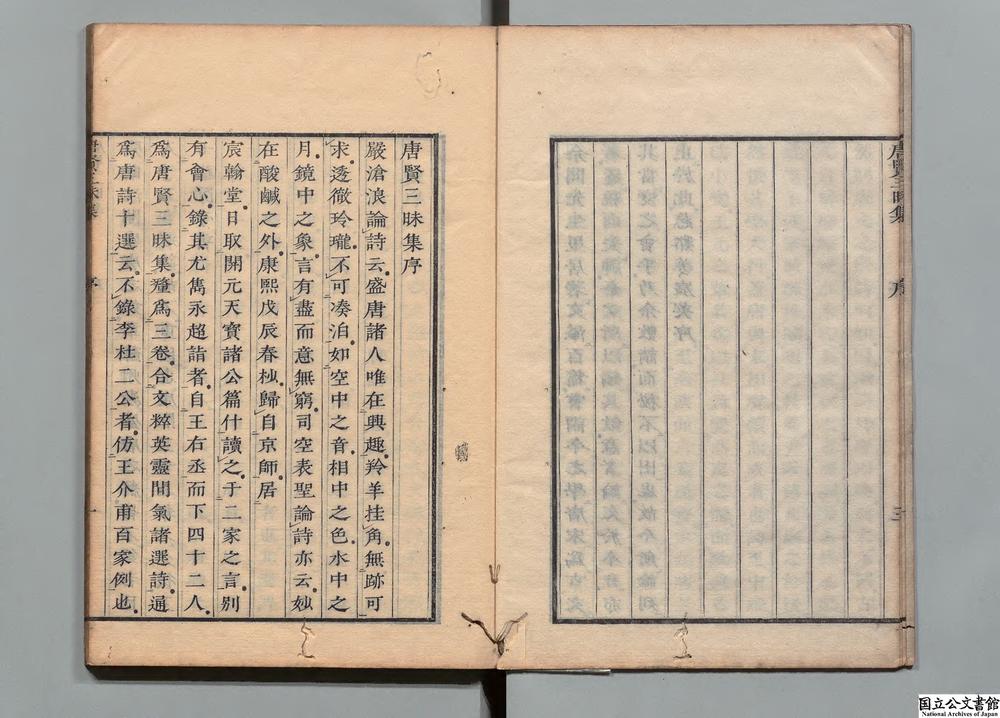 唐賢三昧集
序
三
唐賢三昧集序
嚴滄浪論詩云盛唐諸人唯在興趣羚羊挂角無跡可
求透徹玲瓏不可湊泊如空中之音相中之色水中之
月鏡中之象言有盡而意無窮司空表聖論詩亦云妙
在酸鹹之外康熙戊辰春杪歸自京師居
宸翰堂日取開元天寶諸公篇什讀之于二家之言別
有會心錄其尤雋永超詣者自王右丞而下四十二人
爲唐賢三昧集釐爲三卷合文粹英靈間氣諸選詩通
爲唐詩十選云不錄李杜二公者仿王介甫百家例也
唐賢三昧集
序
一
国立公文書館
National Archives of Japan